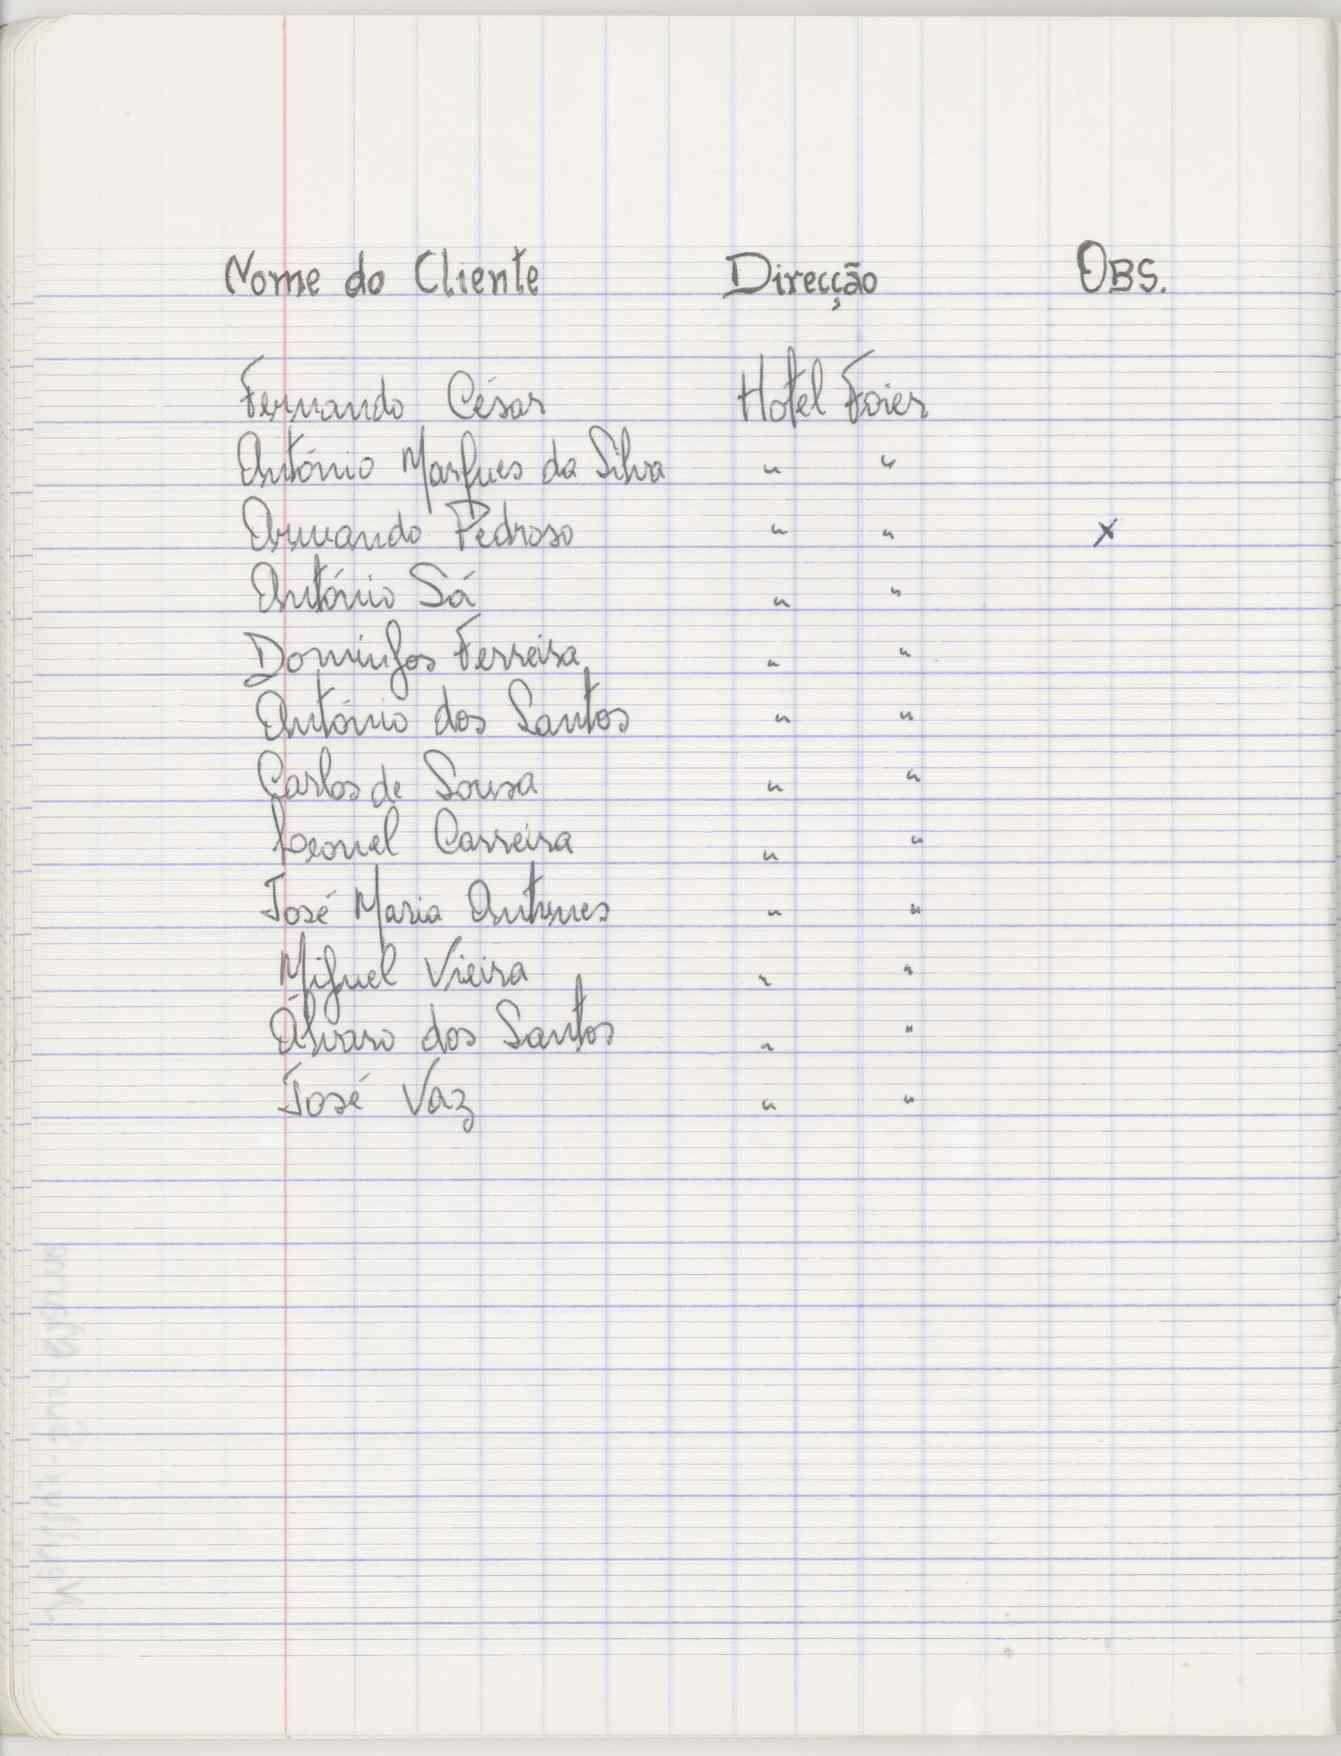 Nome do Cliente Direcção OBS.
Fernando César Hotel Foier
António Marques da Silva " "
Armando Pedroso " " X
António Sá " "
Domingos Ferreira " "
António dos Santos " "
Carlos de Sousa " "
Leonel Carreira " "
José Maria Antunes " "
Miguel Vieira " "
Álvaro dos Santos " "
José Vaz " "